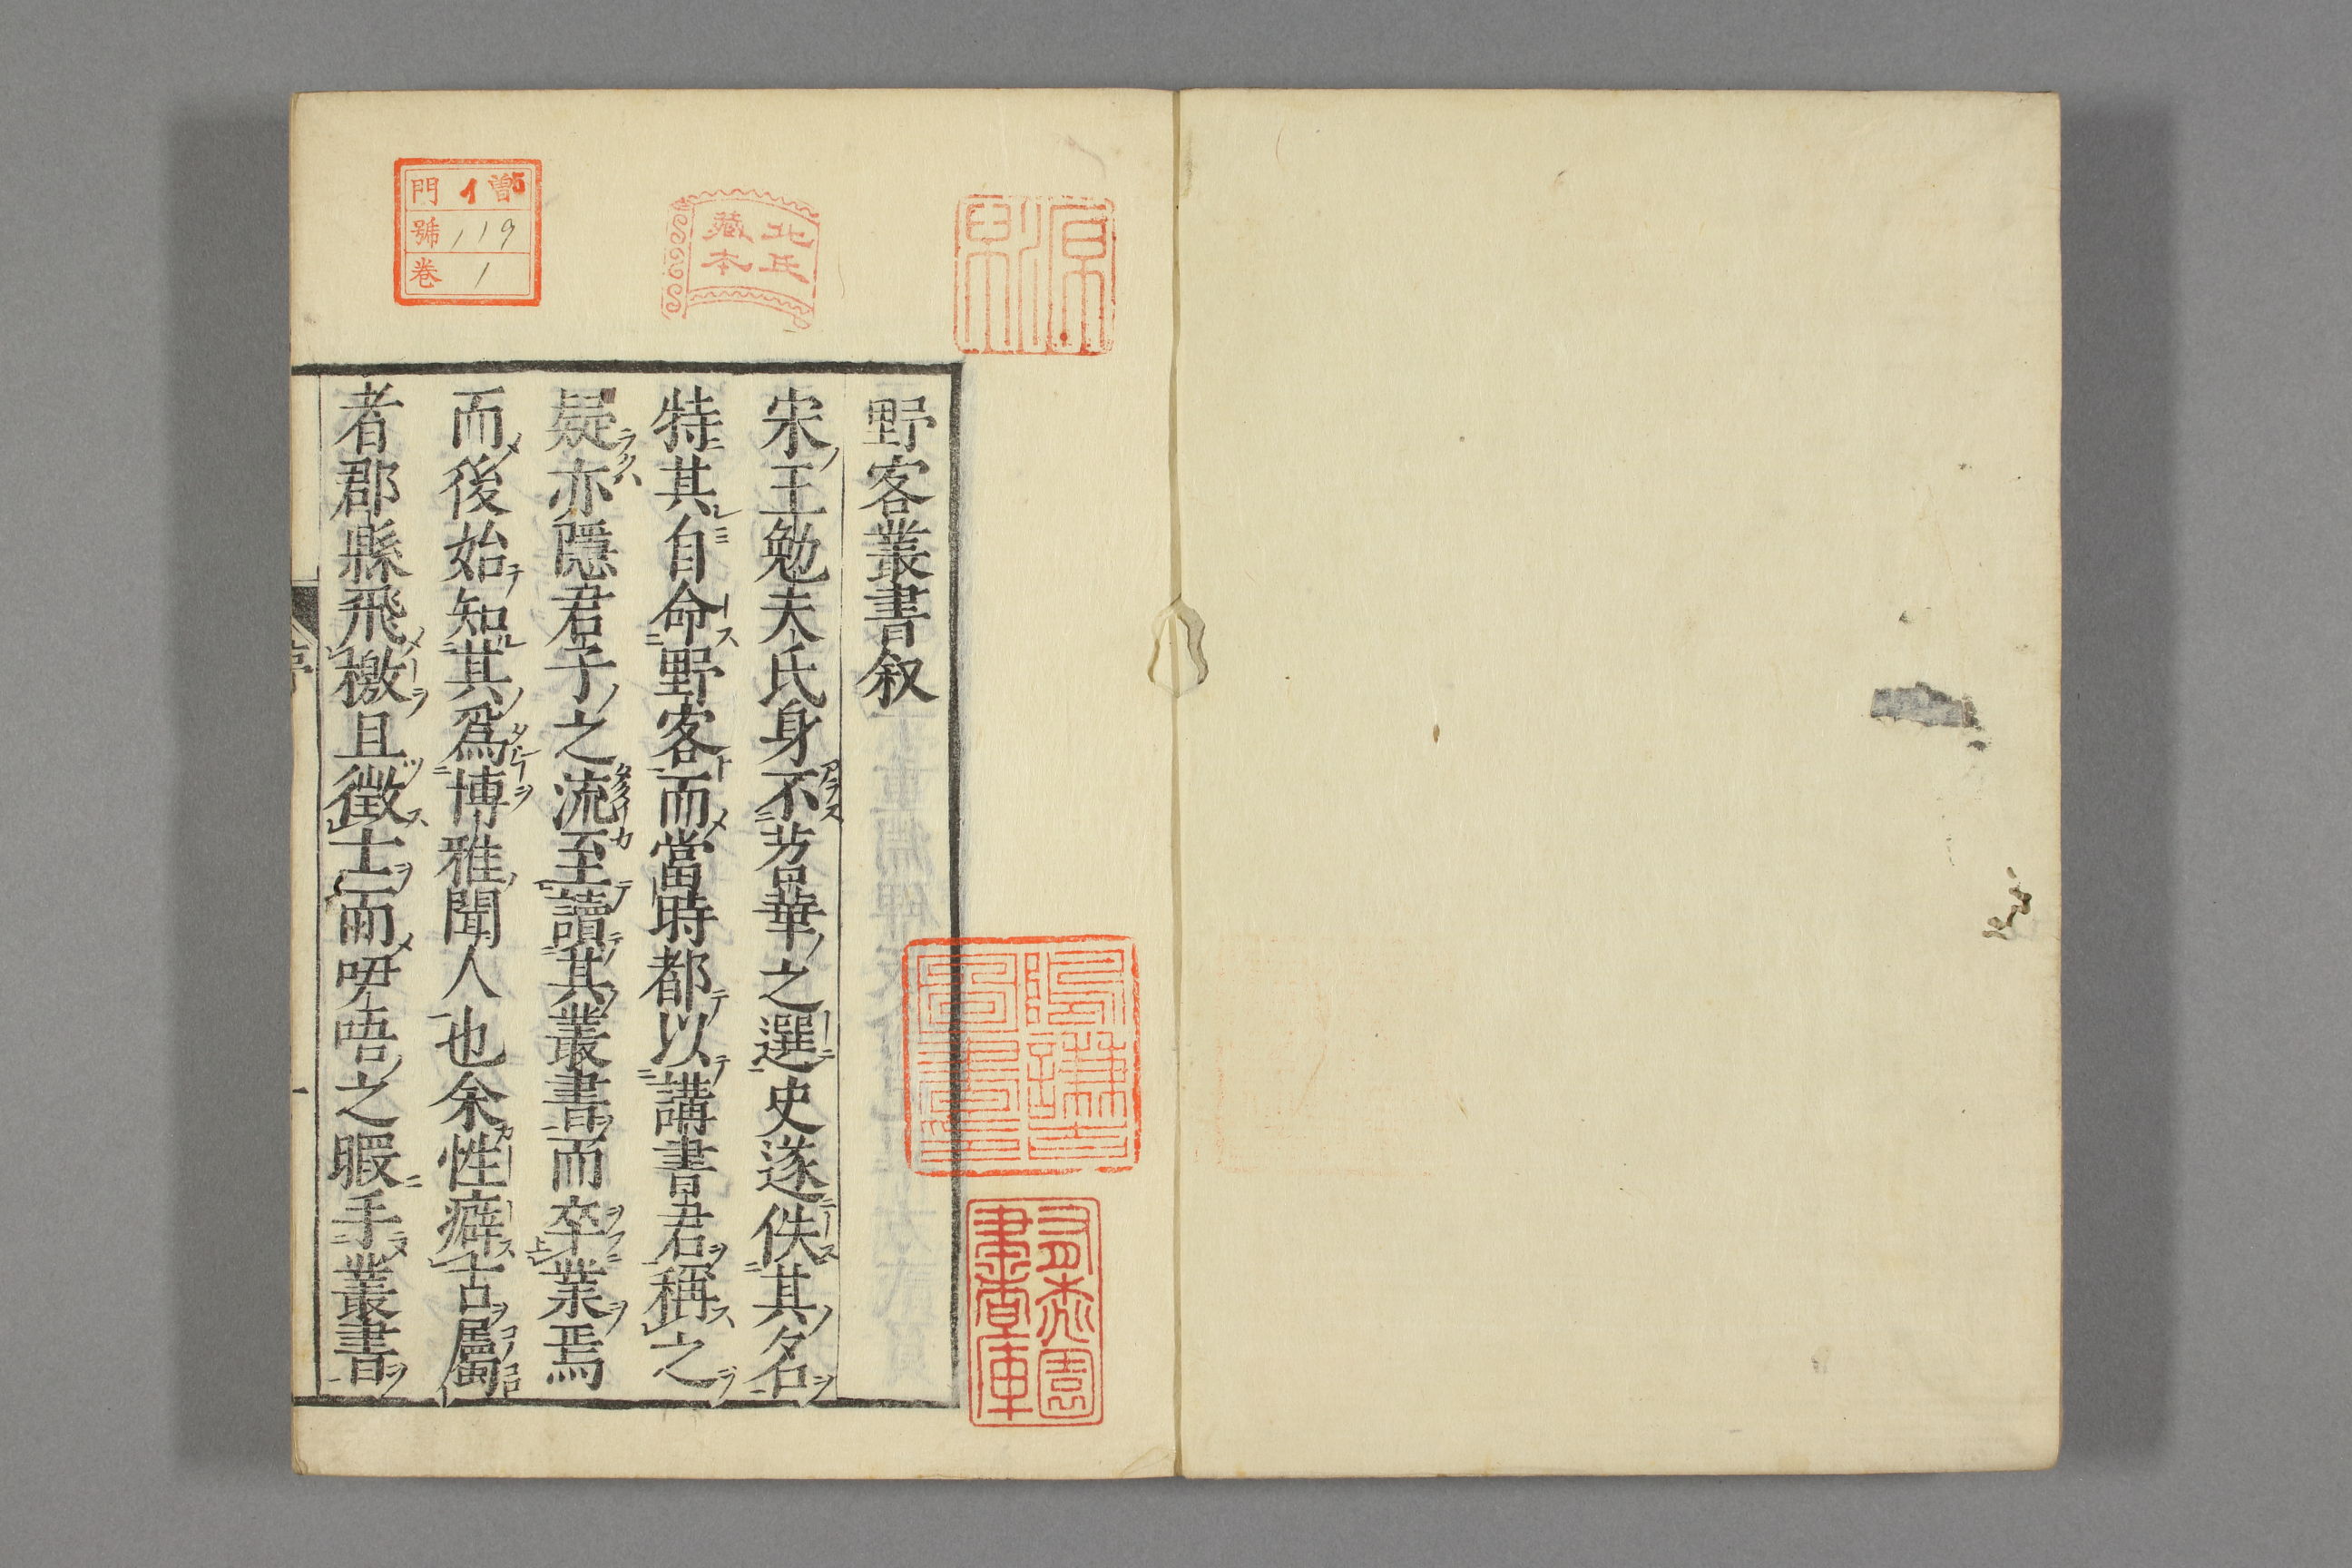 野客叢書叙
宋王勉夫氏身不苕華之選史遂佚其名
特其自命野客而當時都以講書君稱之
疑亦隱君子之流至讀其叢書而卒業焉
而後始知其爲博雅聞人也余性癖古屬
者郡縣飛檄且徵士而吚唔之暇手叢書
門 1 曾5
號 119
卷 1
北氏
藏本